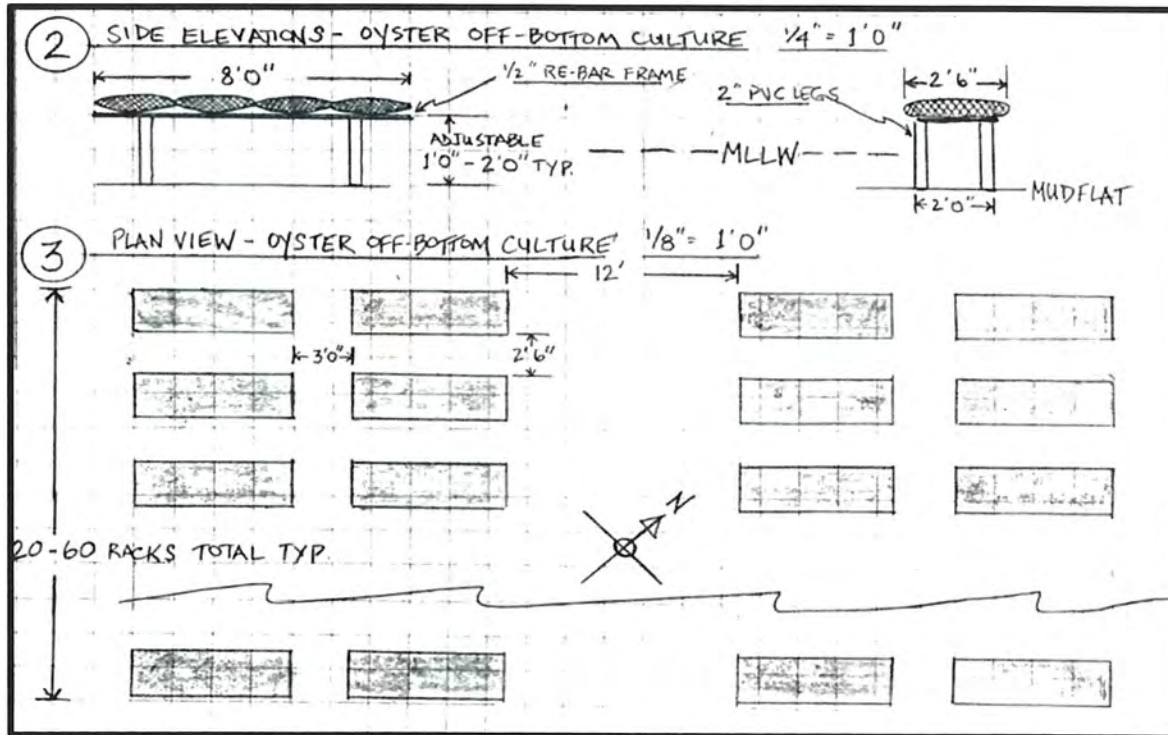 2 SIDE ELEVATIONS - OYSTER OFF-BOTTOM CULTURE 1/4" = 1'0"
8'0"
1/2" RE-BAR FRAME
2'6"
2" PVC LEGS
ADJUSTABLE
1'0" - 2'0" TYP.
MLLW
MUDFLAT
2'0"
3 PLAN VIEW - OYSTER OFF-BOTTOM CULTURE 1/8" = 1'0"
12'
3'0"
2'6"
N
20-60 RACKS TOTAL TYP.